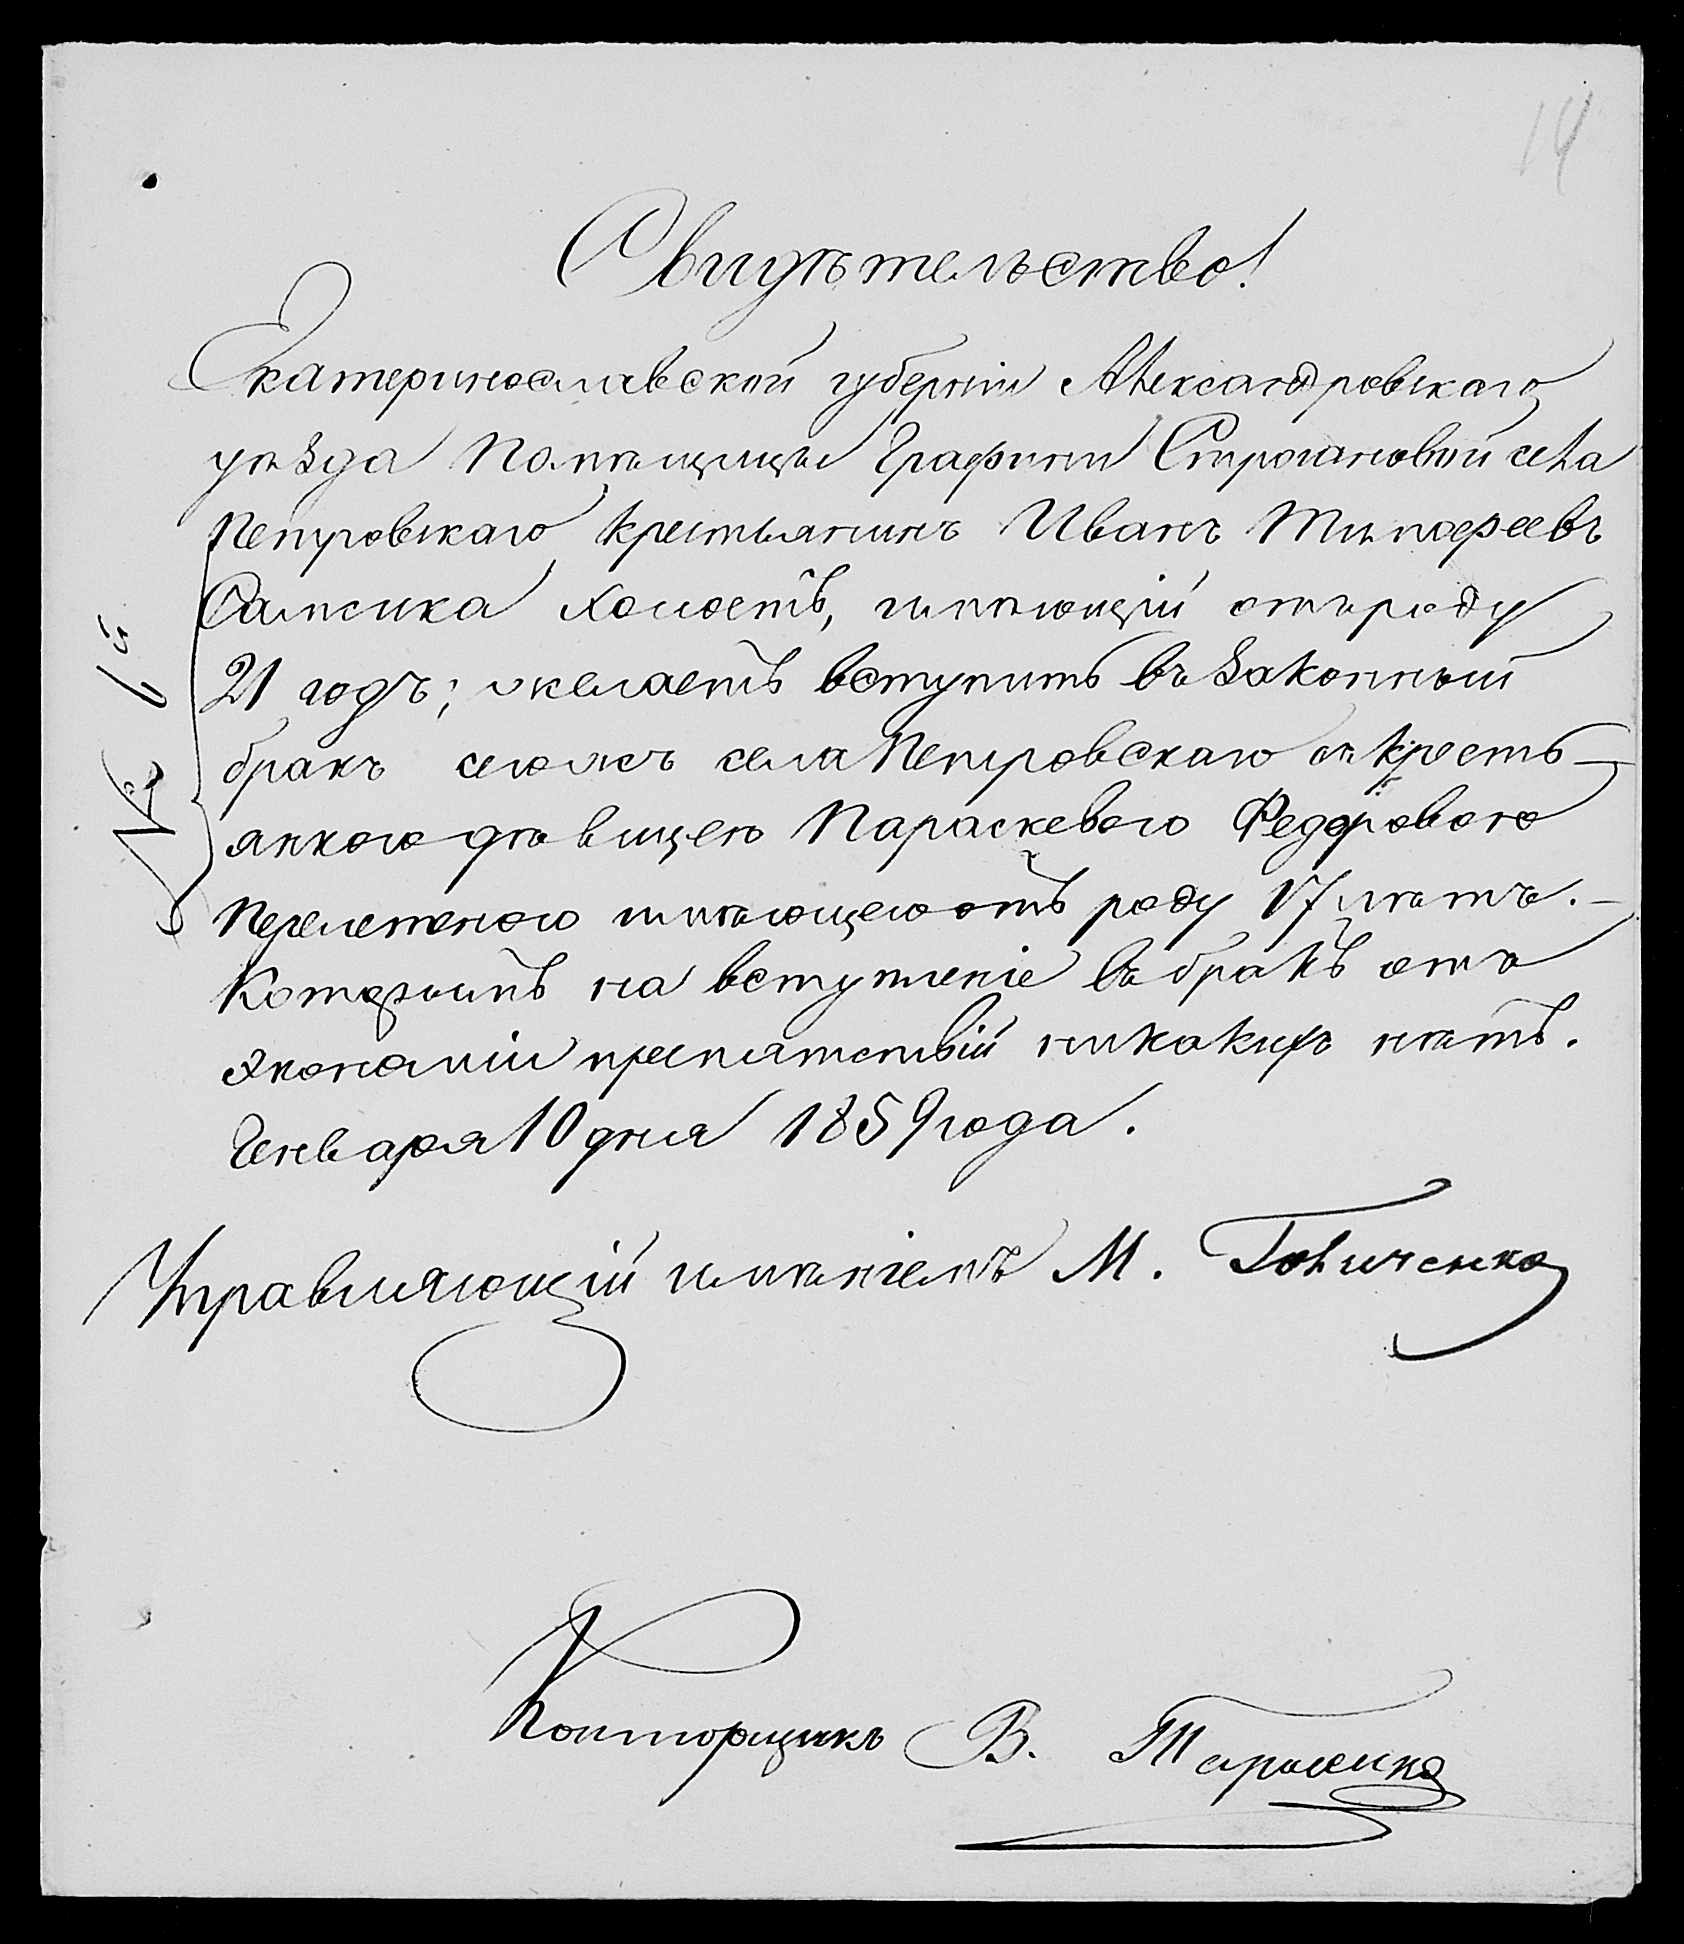 14
Свидѣтельство!
Екатеринославской губерніи Александровскаго
уѣзда Помѣщицы Графини Строгановой села
Петровскаго крестьянинъ Иванъ Тимофеевъ
холостъ, имѣющій отъ роду
21 годъ; желаетъ вступить въ законный
бракъ сегожъ села Петровскаго съ кресть-
янкою дѣвицею Параскевою Федоровою
имѣющею отъ роду 17 лѣтъ.-
Которымъ на вступленіе въ бракъ отъ
экономіи препятствій никакихъ нѣтъ.
Генваря 10 дня 1859 года.
№ 6й
Управляющій имѣніемъ М.
Конторщикъ В.